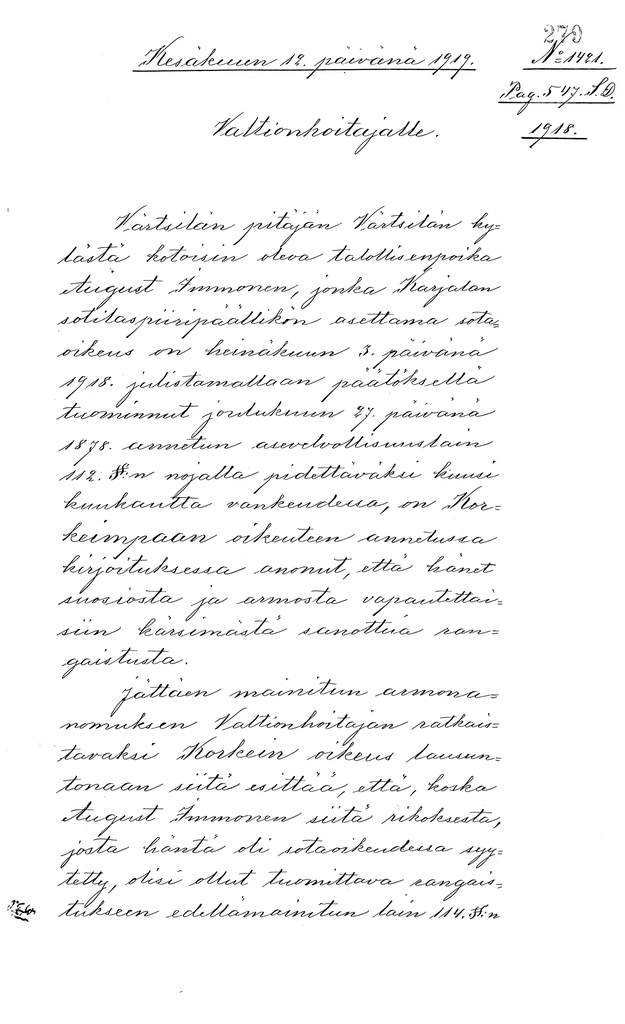 279
Kesäkuun 12. päivänä 1919.
No 1421.
Pag. 547. S.D.
1918.
Valtionhoitajalle.
Värtsilän pitäjän Värtsilän ky=
lästä kotoisin oleva talollisenpoika
August Immonen, jonka Karjalan
sotilaspiiripäällikön asettama sota=
oikeus on heinäkuun 3. päivänä
1918. julistamallaan päätöksellä
tuominnut joulukuun 27. päivänä
1878. annetun asevelvollisuuslain
112. §:n nojalla pidettäväksi kuusi
kuukautta vankeudessa, on Kor=
keimpaan oikeuteen annetussa
kirjoituksessa anonut, että hänet
suosiosta ja armosta vapautettai=
siin kärsimästä sanottua ran=
gaistusta.
Jättäen mainitun armona=
nomuksen Valtionhoitajan ratkais=
tavaksi Korkein oikeus lausun=
tonaan siitä esittää, että, koska
August Immonen siitä rikoksesta,
josta häntä oli sotaoikeudessa syy=
tetty, olisi ollut tuomittava rangais=
tukseen edellämainitun lain 114. §:n